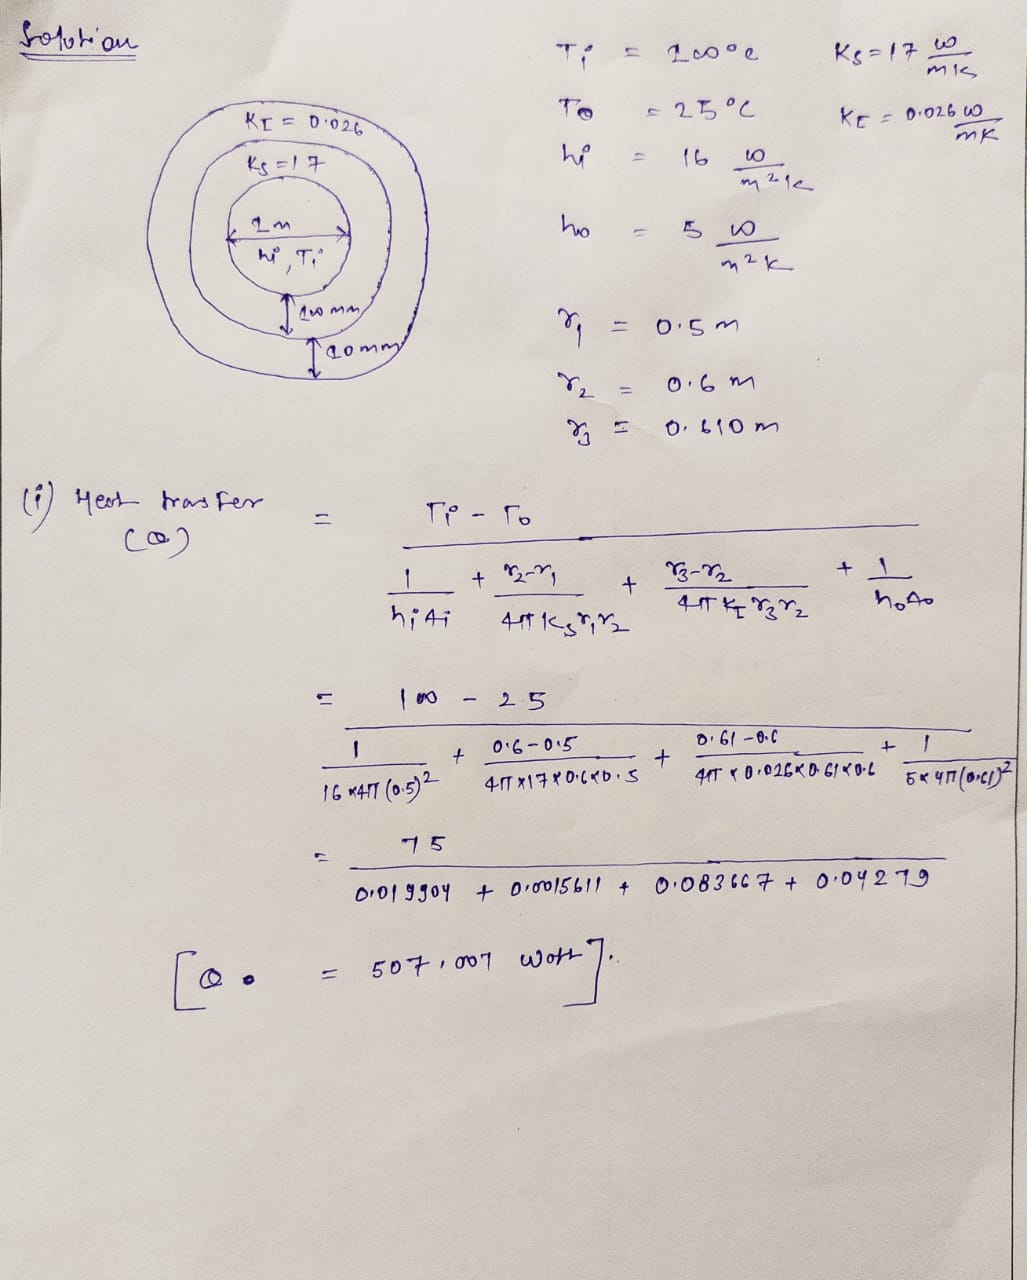 Solution
Ti = 100°C    Ks = 17 w/mk
To = 25°C    KI = 0.026 w/mK
hi = 16 w/m²k
ho = 5 w/m²K
r₁ = 0.5 m
r₂ = 0.6 m
r₃ = 0.610 m
KI = 0.026
Ks = 17
1m
hi, Ti
100mm
10mm
(i) Heat transfer (Q) = (Ti - To) / (1/(hiAi) + (r₂-r₁)/(4π Ks r₁r₂) + (r₃-r₂)/(4π KI r₃r₂) + 1/(hoAo))
= (100 - 25) / (1/(16×4π(0.5)²) + (0.6-0.5)/(4π×17×0.6×0.5) + (0.61-0.6)/(4π×0.026×0.61×0.6) + 1/(5×4π(0.61)²))
= 75 / (0.019904 + 0.0015611 + 0.083667 + 0.04279)
[Q. = 507.007 watt].